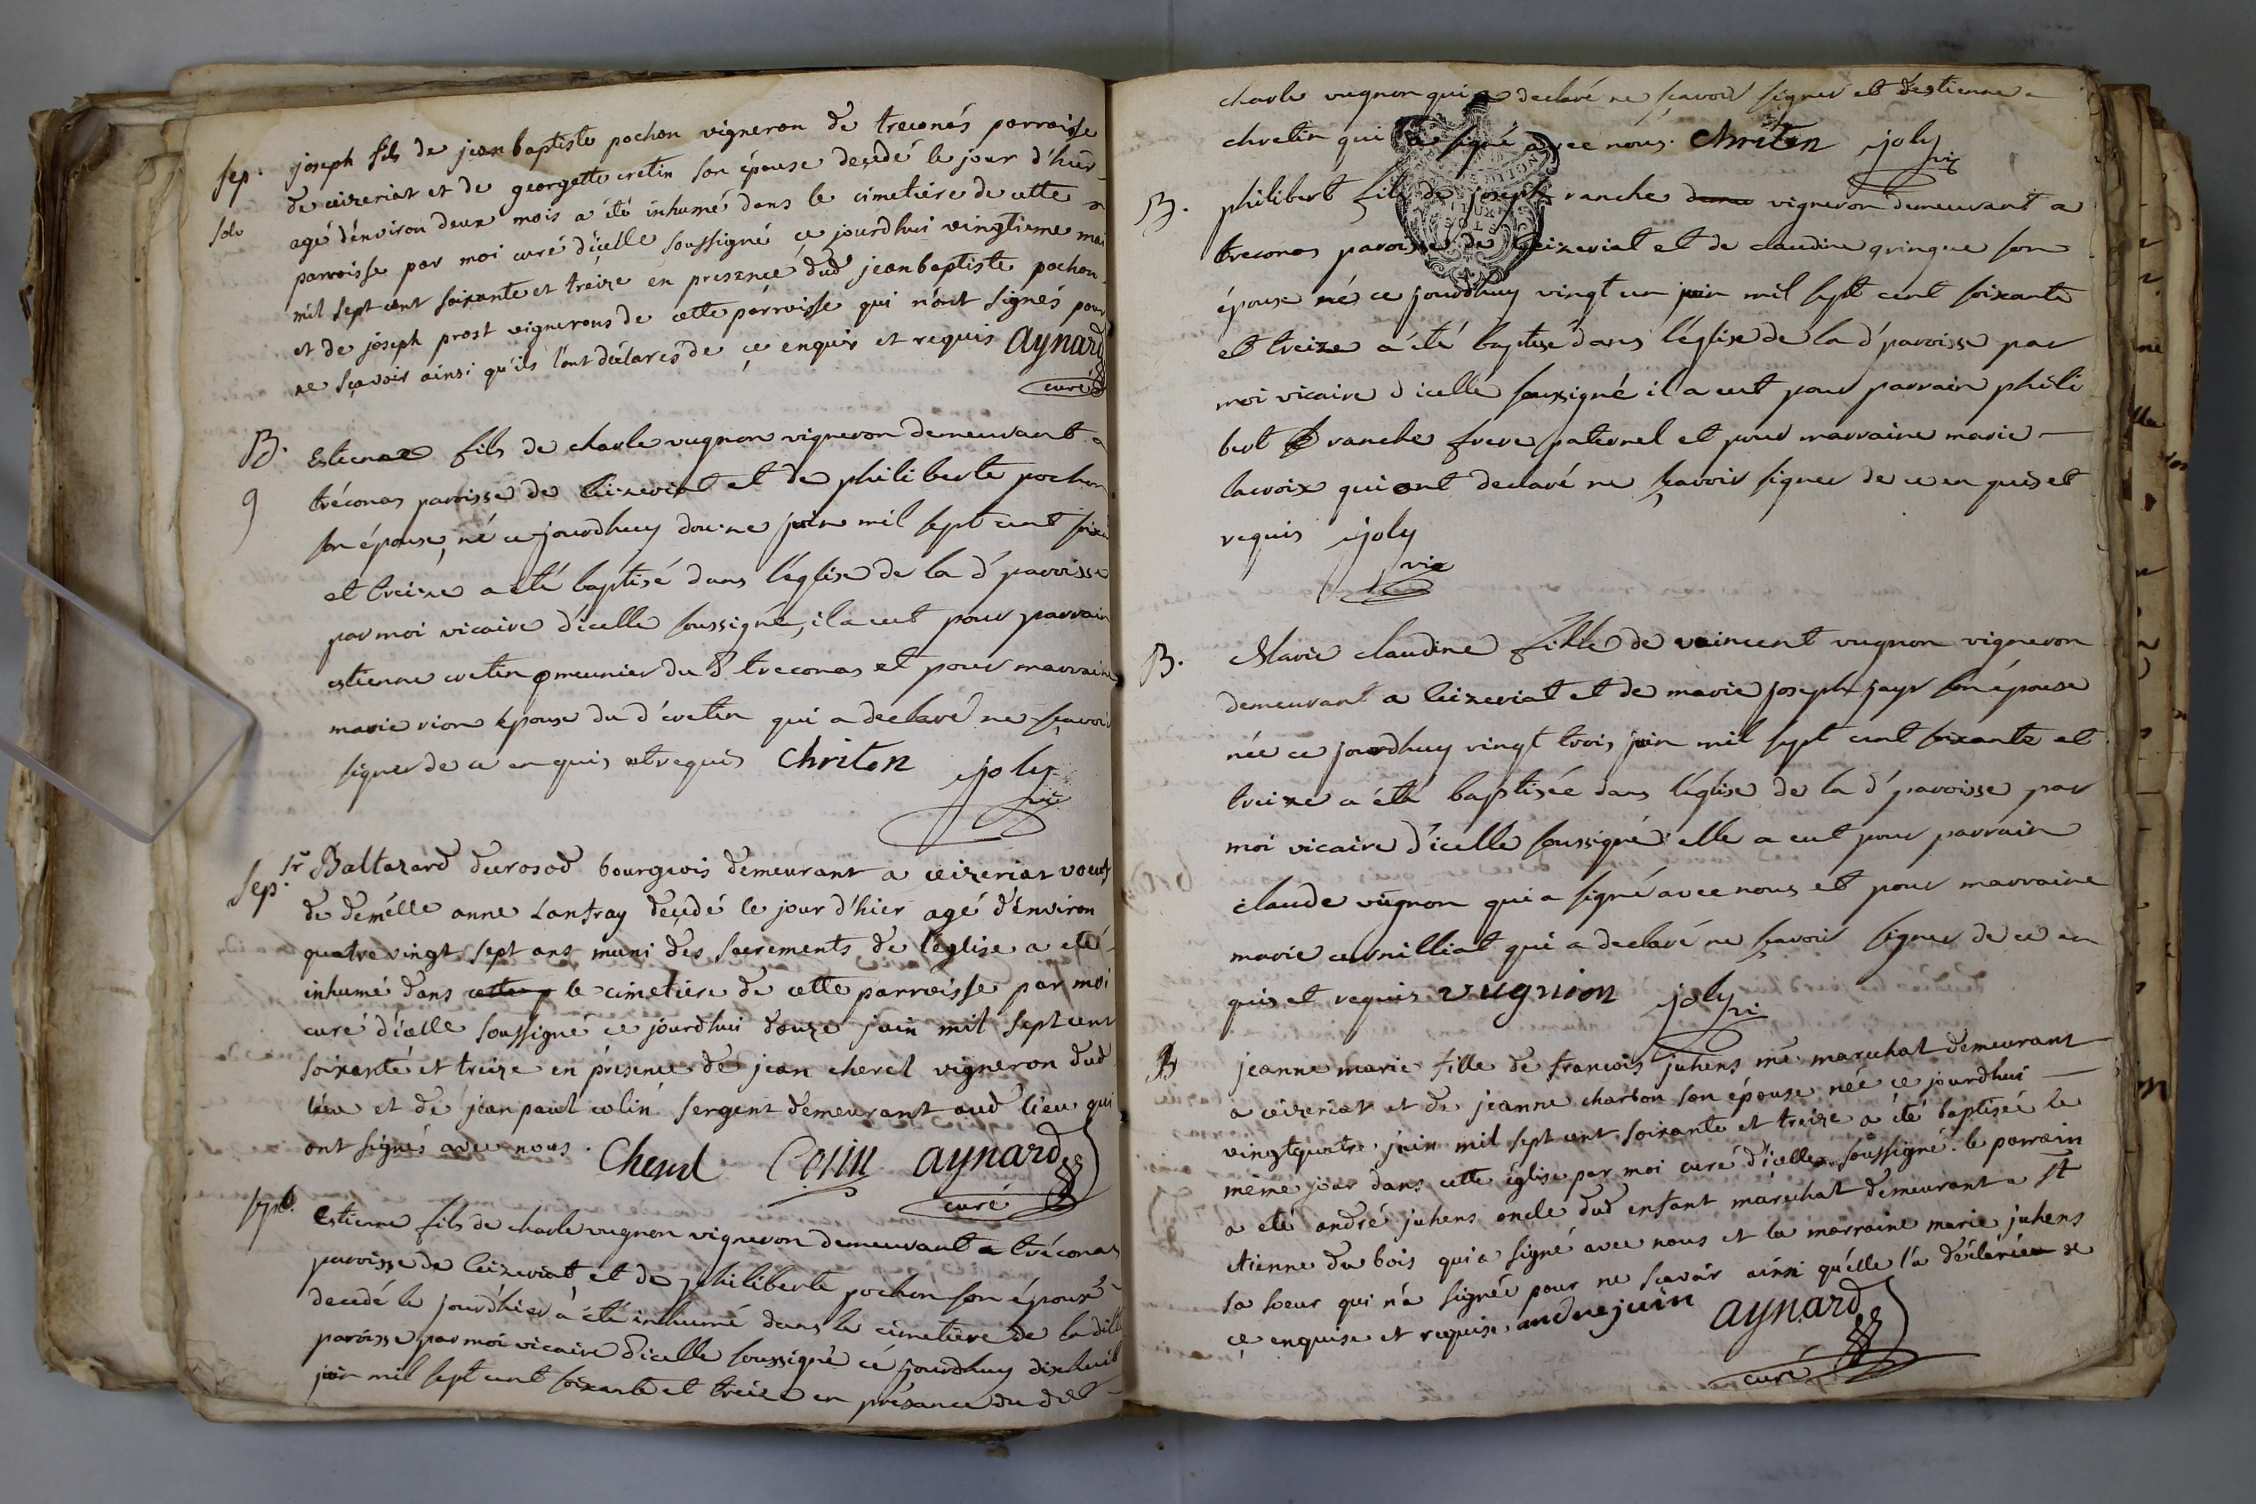 sep. joseph fils de jean baptiste pochon vigneron de treconas parroisse
solv de ceizeriat et de georgette cretin son épouse decédé le jour d'hier
agé d'environ deux mois a été inhumé dans le cimetiere de cette
parroisse par moi curé d'icelle soussigné ce jourdhui vingtieme mai
mil sept cent soixante et treize en presence dud jean baptiste pochon
et de joseph prost vignerons de cette parroisse qui n'ont signés pour
ne sçavoir ainsi qu'ils l'ont déclarés de ce enquis et requis Aynard
curé
B. Estienne fils de charle vugnon vigneron demeurant a
9 tréconas paroisse de Ceizeriat et de philiberte pochon
son épouse, né ce jourdhuy douze juin mil sept cent soixa
et treize a été baptisé dans l'église de la d. paroisse
par moi vicaire d'icelle soussigné, il a eut pour parrain
estienne cretin meunier du d. treconas et pour marraine
marie rion épouse du d. cretin qui a declaré ne sçavoir
signer de ce enquis et requis Chriten joly
vic
sep. Sr Baltazard durosod bourgeois demeurant a ceizeriat voeuf
de demelle anne Lanfray decédé le jour d'hier agé d'environ
quatre vingt sept ans muni des sacrements de l'église a eté
inhumé dans cette p le cimetiere de cette parroisse par moi
curé d'icelle soussigné ce jourdhui douze juin mil sept cent
soixante et treize en présence de jean cherel vigneron dud
lieu et de jean paul colin sergent demeurant aud lieu qui
ont signés avec nous. Cherel Colin aynard
curé
sep. Estienne fils de charle vugnon vigneron demeurant a tréconas
paroisse de Ceizeriat et de philiberte pochon son épouse
decedé le jourdhier a été inhumé dans le cimetiere de la ditte
paroisse par moi vicaire d'icelle soussigné cé jourdhuy dixhuit
juin mil sept cent soixante et treize en présance du dit
charle vugnon qui a declaré ne sçavoir signer et d'estienne
chretin qui a signé avec nous. Chriten joly
vic
B. philibert fils de joseph ranche vigneron demeurant a
treconas paroisse de Ceizeriat et de claudine gringue son
épouse né ce jourdhuy vingt un juin mil sept cent soixante
et treize a été baptisé dans l'église de la d. paroisse par
moi vicaire d'icelle soussigné il a eut pour parrain phili
bert ranche frere paternel et pour marraine marie
lacroix qui ont declaré ne sçavoir signer de ce enquis et
requis joly
vic
B. Marie claudine fille de vincent vugnon vigneron
demeurant a Ceizeriat et de marie joseph jayr son épouse
née ce jourdhuy vingt trois juin mil sept cent soixante et
treize a été baptisée dans l'église de la d. paroisse par
moi vicaire d'icelle soussigné elle a eut pour parrain
claude vugnon qui a signé avec nous et pour marraine
marie cornilliat qui a declaré ne sçavoir signer de ce en
quis et requis vugnion joly vic
B jeanne marie fille de francois juhens me marechat demeurant
a ceizeriat et de jeanne charbon son épouse née ce jourdhui
vingt quatre juin mil sept cent soixante et treize a été baptisée le
même jour dans cette église par moi curé d'icelle soussigné. le parrain
a eté andré juhens oncle dud enfant maréchat demeurant a St
etienne du bois qui a signé avec nous et la marraine marie juhens
sa soeur qui n'a signée pour ne scavoir ainsi qu'elle l'a déclarée de
ce enquise et requise. andre juin aynard
curé